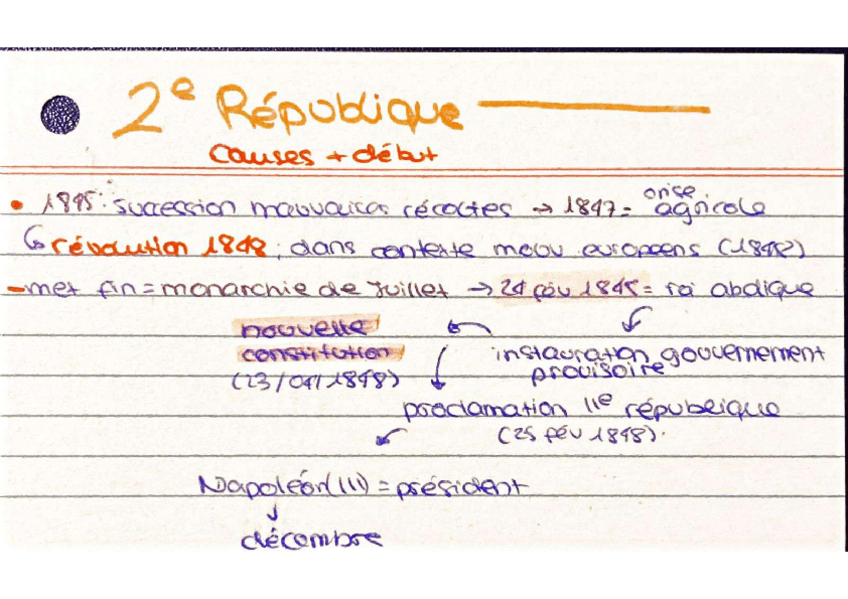 2e République
causes + début
• 1845: succession mauvaises récoltes → 1847 = crise agricole
↳ révolution 1848 : dans contexte mouv européens (1848)
- met fin = monarchie de Juillet → 24 fév 1848 = roi abdique
nouvelle
constitution
(23/04/1848)
instauration gouvernement
provisoire
proclamation IIe république
(25 fév 1848).
Napoléon (III) = président
décembre